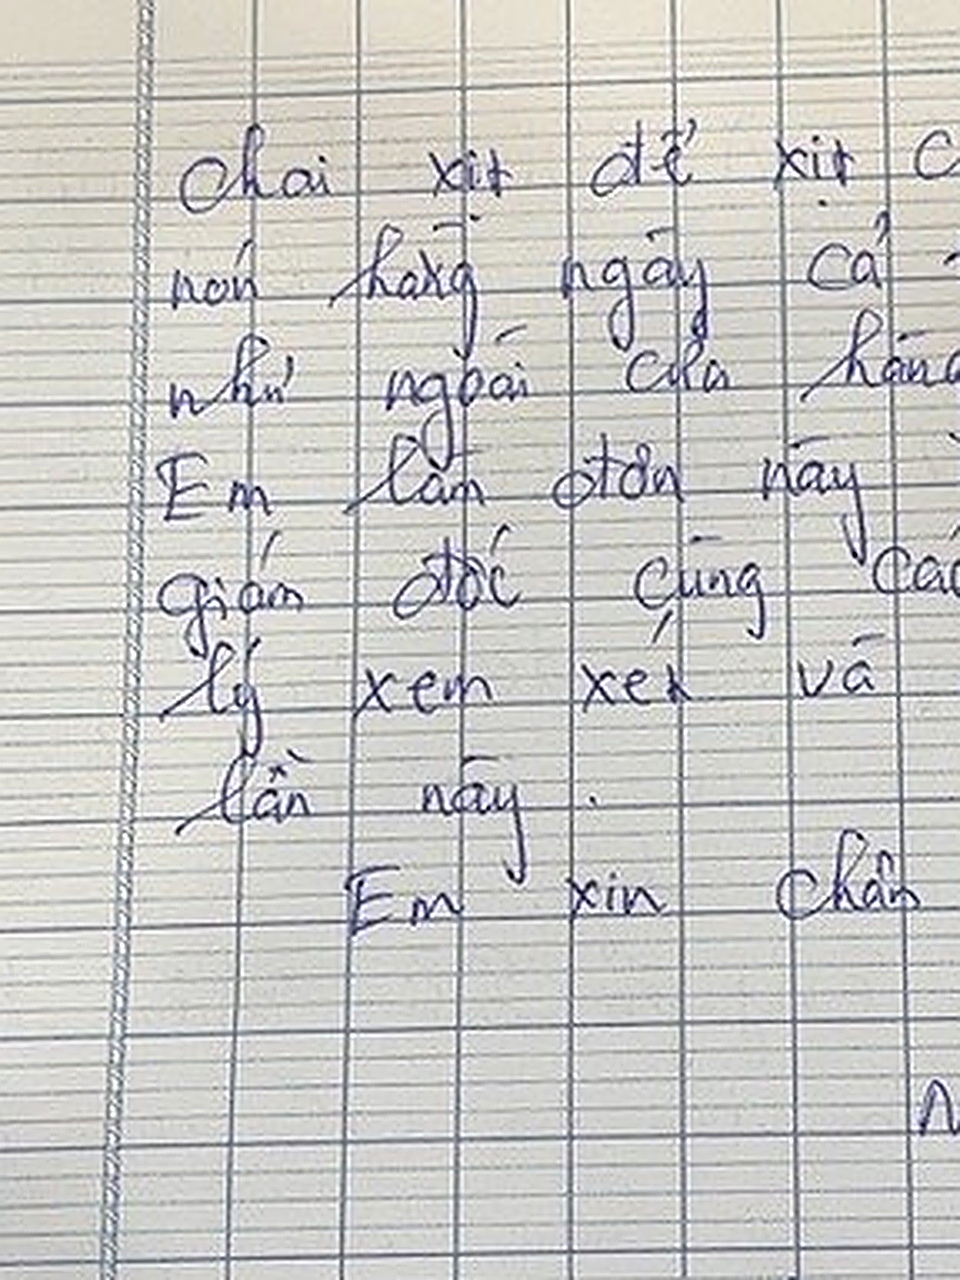 Chai xịt để xịt
nón hàng ngày cả
như ngoài cửa hàng
Em làm đơn này
giám đốc cùng các
lý xem xét và
lần này.
Em xin chân